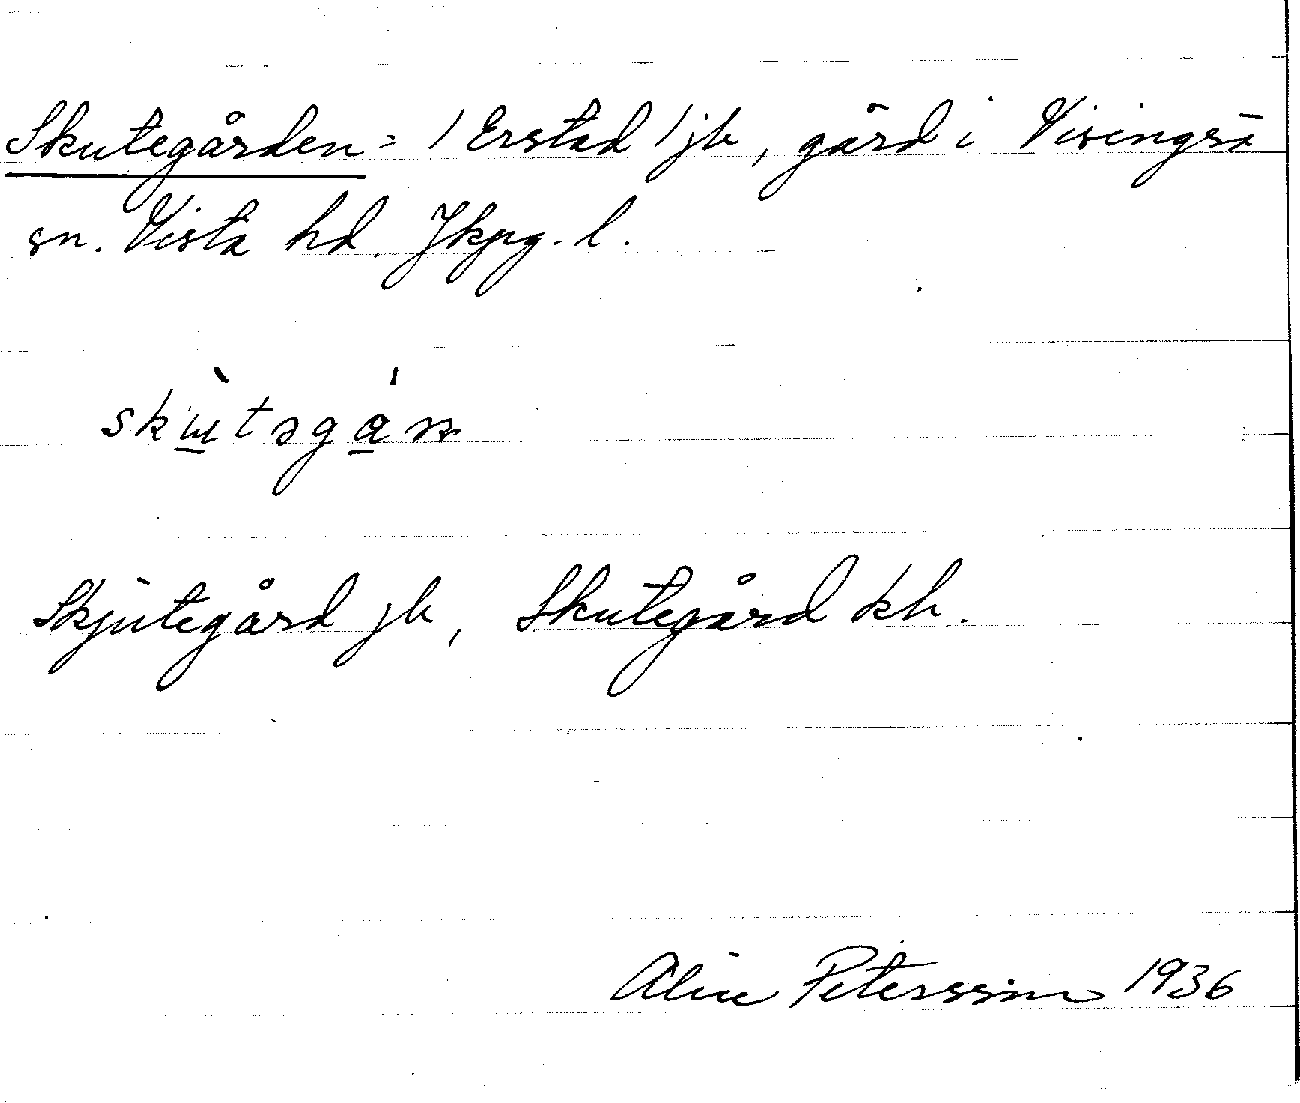 Skutegården = / Erstad / jb, gård i Visingsö
sn. Vista hd. Jkpg. l.
skùtəgáṣ
Skjutegård jb, Skutegård kh.
Alice Petersson 1936